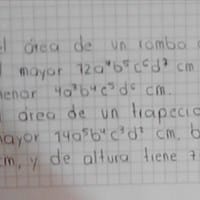 l área de un rombo
mayor 12a⁴b⁵c⁶d⁷ cm
menor 4a³b⁴c⁵d⁶ cm.
área de un trapecio
mayor 14a⁵b⁴c³d² cm, b
cm, y de altura tiene 7